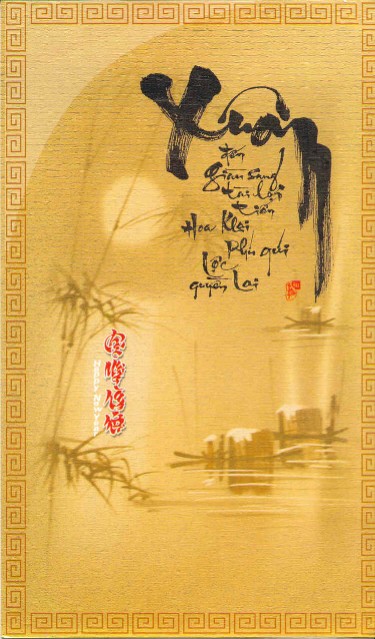 Xuân
đến
giàu sang
tài lợi
tiến
Hoa Khai
Phú quí
Lộc
quyền Lai